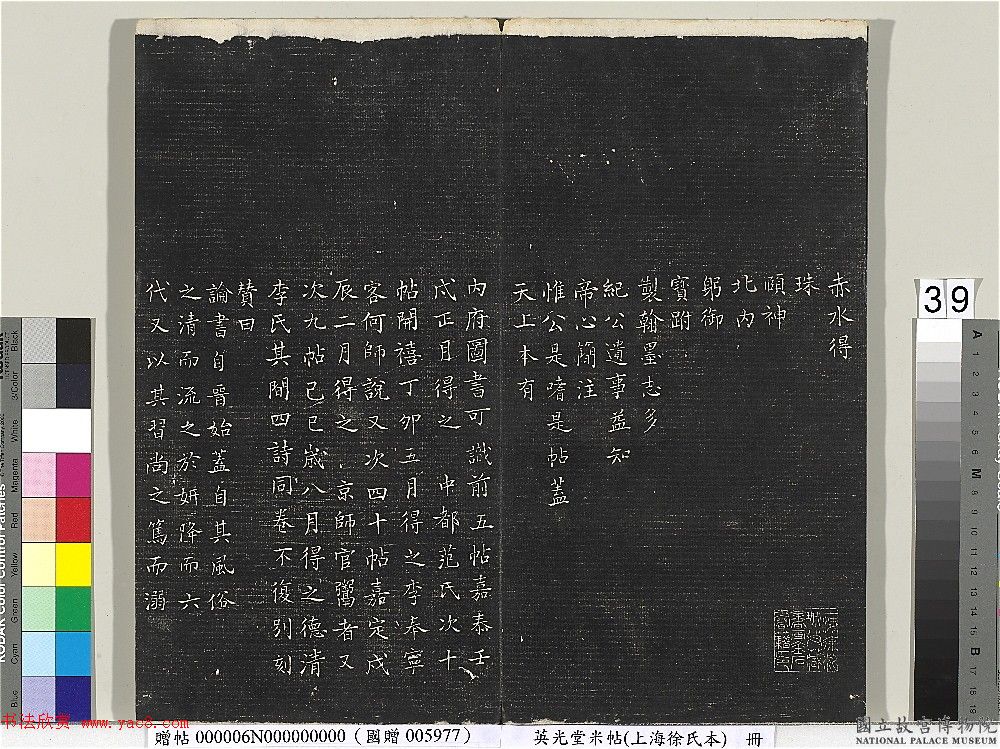 赤水得
珠
頤神
北內
躬御
寶跗
製翰墨志多
紀公遺事益知
帝心簡注
惟公是嗜是帖蓋
天上本有
內府圖書可識前五帖嘉泰壬
戌正月得之 中都范氏次十
帖開禧丁卯五月得之李奉寧
客何師說又次四十帖嘉定戊
辰二月得之京師官鬻者又
次九帖己巳歲八月得之德清
李氏其間四詩同卷不復別刻
贊曰
論書自晉始蓋自其風俗
之清而流之於妍降而六
代又以其習尚之篤而溺
39
贈帖 000006N000000000 (國贈 005977)
英光堂米帖(上海徐氏本) 冊
國立故宮博物院
NATIONAL PALACE MUSEUM
书法欣赏 www.yac8.com
KODAK Color Control Patches
Blue
Cyan
Green
Yellow
Red
Magenta
White
3/Color
Black
A
1
2
3
4
5
6
M
8
9
10
11
12
13
14
15
B
17
18